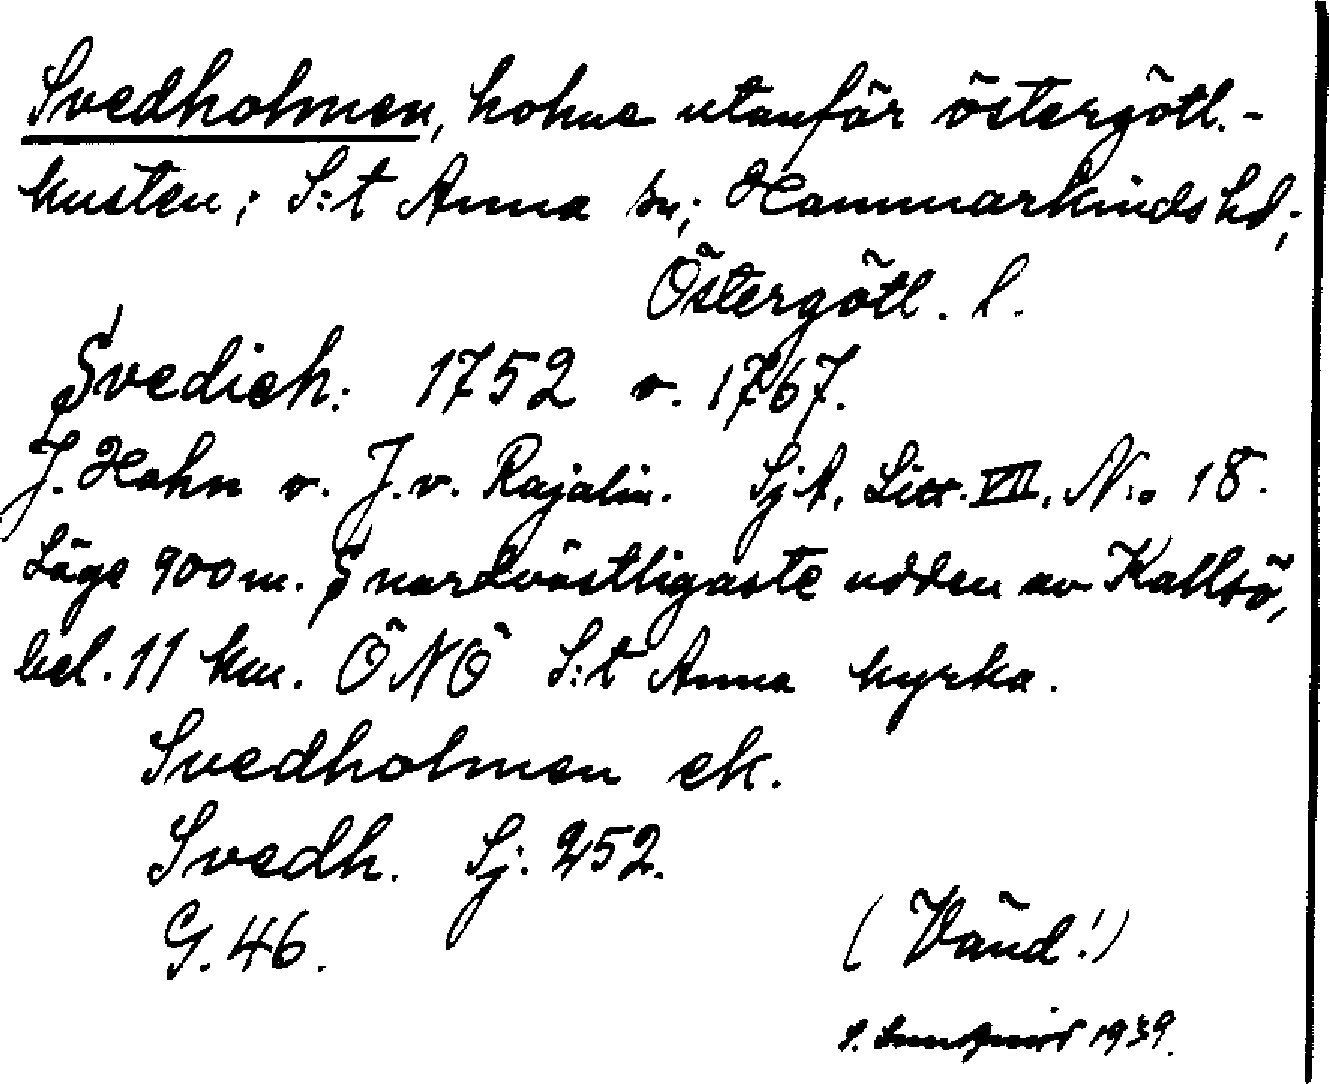 Svedholmen, holme utanför östergötl.-
kusten; S:t Anna sn; Hammarkinds hd;
Östergötl. l.
Svedich: 1752 o. 1767.
J. Hahn o. J. v. Rajalin. SjA. Litt. VII. No 18.
Läge 900 m. S nordvästligaste udden av Kallsö,
bel. 11 km. ÖNÖ S:t Anna kyrka.
Svedholmen ek.
Svedh. Sj. 252.
G. 46.
(Vänd!)
S. 1939.